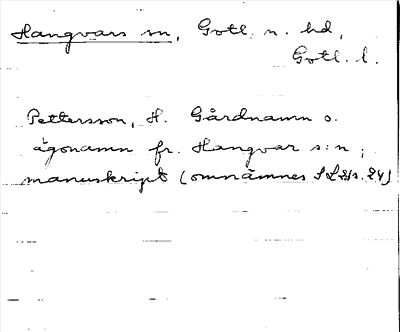 Hangvars sn, Gotl. n. hd,
Gotl. l.
Pettersson, H. Gårdnamn o.
ägonamn fr. Hangvar s:n;
manuskript (omnämnes S. 24)